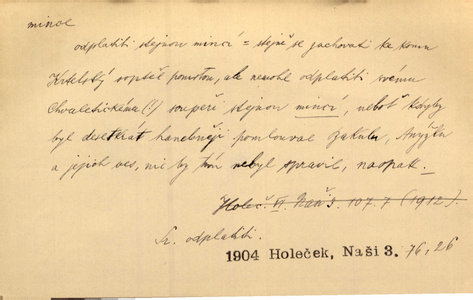 mince
odplatiti stejnou mincí = stejně se zachovati ke komu
Krtelský soptil pomstou, ale nemohl odplatiti svému
Chvaletickému (!) soupeři stejnou mincí, neboť kdyby
byl desetkrát hanebněji pomlouval Jakuba, Anýžku
a jejich ves, nic by tím nebyl spravil, naopak.
Holeč. II. Naši. 107.7 (1912).
Sr. odplatiti.
1904 Holeček, Naši 3. 76, 26